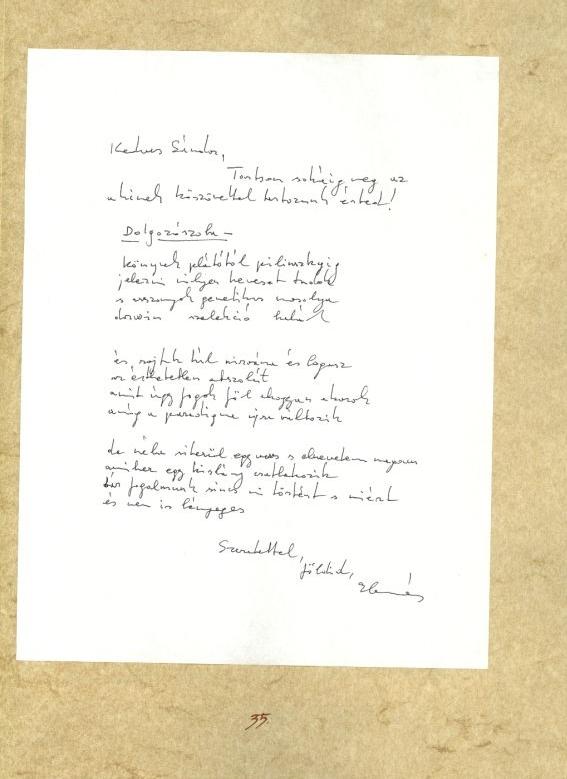 Kedves Sándor,
Tartson sokáig meg az
akinek köszönettel tartozunk érted!
Dolgozószoba –
könyvek plátótól pilinszkyig
jelezni milyen keveset tudok
s asszonyok genetikus mosolya
darwin szelekció halál
és rajtuk túl nirvána és logosz
az érthetetlen abszolút
amit úgy fogok föl ahogyan akarok
amíg a paradigma újra változik
de néha sikerül egy vers s elnevetem magam
amihez egy kislány csatlakozik
bár fogalmunk sincs mi történt s miért
és nem is lényeges
Szeretettel,
földid,
35.